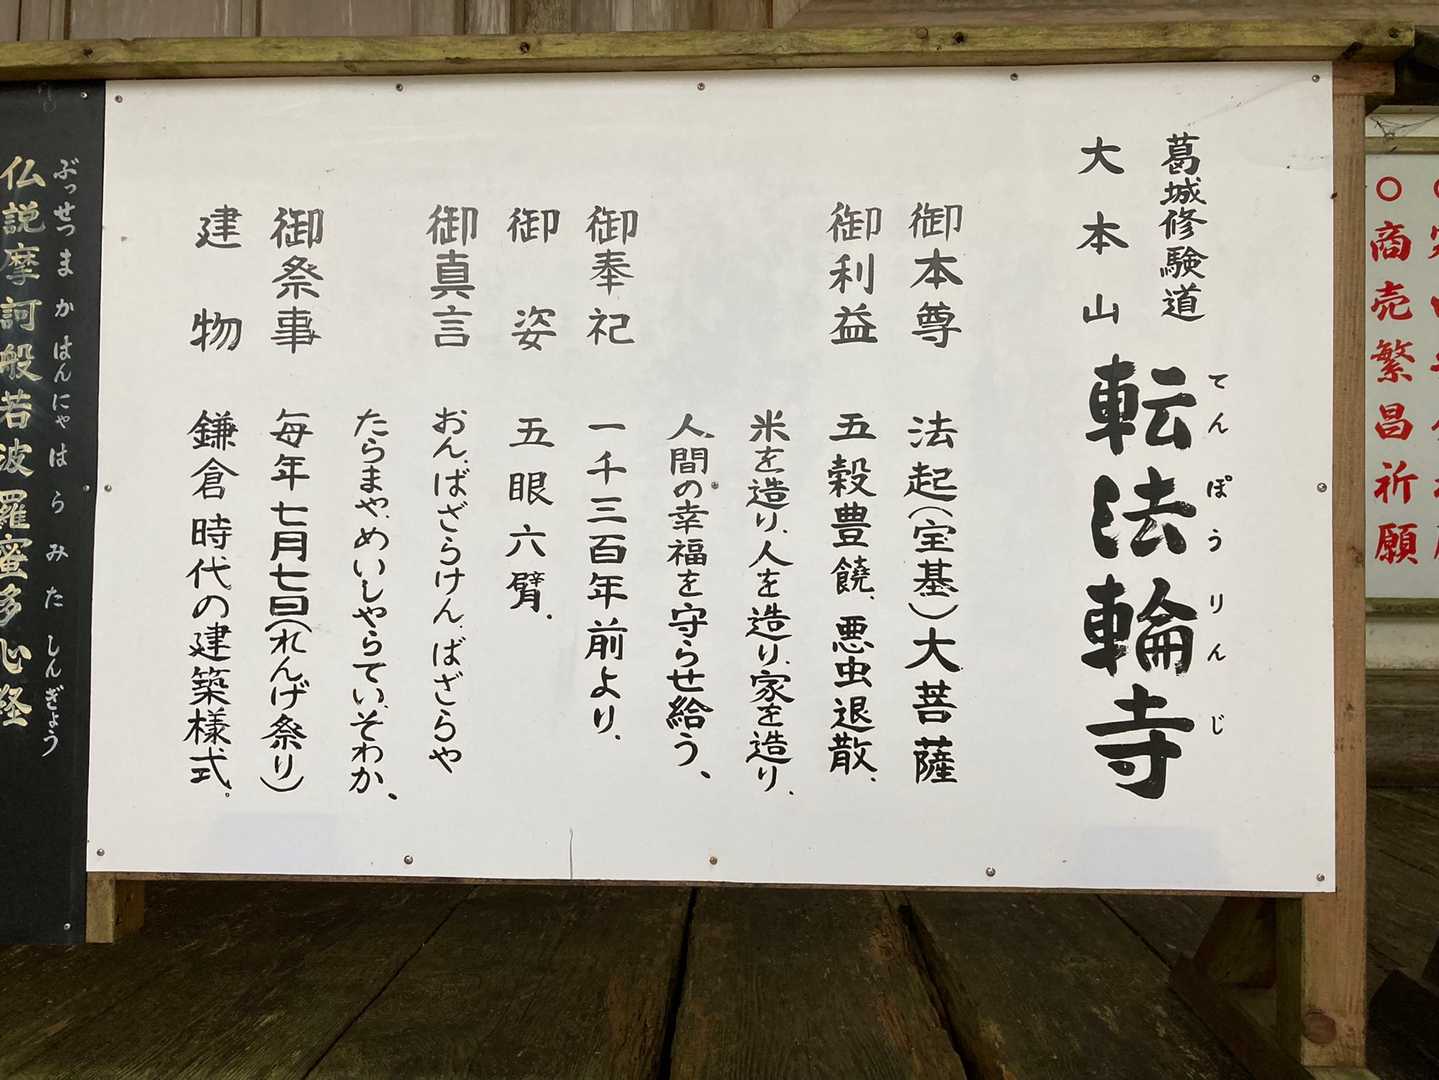 ○商売繁昌祈願
葛城修験道
大本山
転法輪寺
てんぽうりんじ
御本尊 法起(宝基)大菩薩
御利益 五穀豊饒、悪虫退散、
米を造り、人を造り、家を造り、
人間の幸福を守らせ給う、
御奉祀 一千三百年前より、
御姿 五眼六臂、
御真言 おん、ばざらけん、ばざらや
たらまや、めいしやらてい、そわか、
御祭事 毎年七月七日(れんげ祭り)
建物 鎌倉時代の建築様式。
ぶっせつまかはんにゃはらみたしんぎょう
仏説摩訶般若波羅蜜多心経